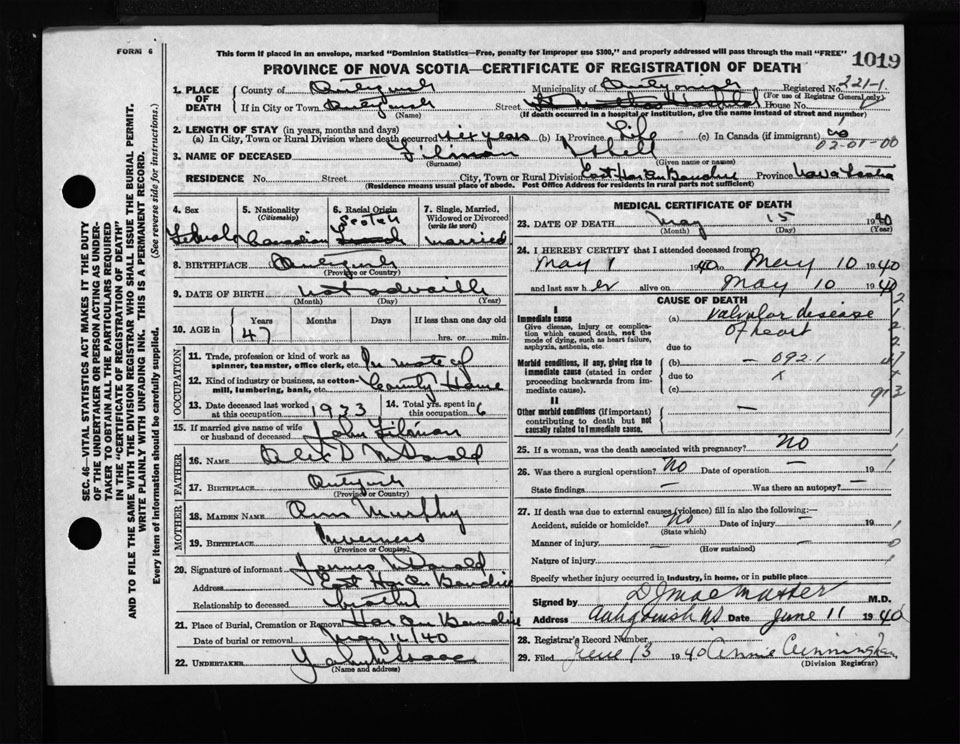 FORM 6
This form if placed in an envelope, marked "Dominion Statistics—Free, penalty for improper use $300," and properly addressed will pass through the mail "FREE"
1019
PROVINCE OF NOVA SCOTIA—CERTIFICATE OF REGISTRATION OF DEATH
221-1
1. PLACE OF DEATH
County of Antigonish Municipality of Antigonish Registered No.
(For use of Registrar General only)
If in City or Town Antigonish Street St Marthas Hospital House No.
(Name) (If death occurred in a hospital or institution, give the name instead of street and number)
2. LENGTH OF STAY (in years, months and days)
(a) In City, Town or Rural Division where death occurred six years (b) In Province Life (c) In Canada (if immigrant) no
02-01-00
3. NAME OF DECEASED
(Surname) (Given name or names)
RESIDENCE No. Street City, Town or Rural Division East Harbour Bouchie Province Nova Scotia
(Residence means usual place of abode. Post Office Address for residents in rural parts not sufficient)
4. Sex
5. Nationality (Citizenship)
6. Racial Origin
7. Single, Married, Widowed or Divorced (write the word)
Female Canadian Scotch married
8. BIRTHPLACE Antigonish
(Province or Country)
9. DATE OF BIRTH not
(Month) (Day) (Year)
10. AGE in
Years Months Days If less than one day old
47 hrs. or min.
OCCUPATION
11. Trade, profession or kind of work as spinner, teamster, office clerk, etc. Inmate of
12. Kind of industry or business, as cotton-mill, lumbering, bank, etc. County Home
13. Date deceased last worked at this occupation 1933
14. Total yrs. spent in this occupation 6
15. If married give name of wife or husband of deceased John
FATHER
16. NAME Alex D McDonald
17. BIRTHPLACE Antigonish
(Province or Country)
MOTHER
18. MAIDEN NAME Ann Murphy
19. BIRTHPLACE Inverness
(Province or Country)
20. Signature of informant James McDonald
Address East Harbour Bouchie
Relationship to deceased brother
21. Place of Burial, Cremation or Removal Harbour Bouchie
Date of burial or removal May 16/40
22. UNDERTAKER
(Name and address)
MEDICAL CERTIFICATE OF DEATH
23. DATE OF DEATH May 15 1940
(Month) (Day) (Year)
24. I HEREBY CERTIFY that I attended deceased from
May 1 1940 to May 10 1940
and last saw her alive on May 10 1940
CAUSE OF DEATH
I
Immediate cause
Give disease, injury or complication which caused death, not the mode of dying, such as heart failure, asphyxia, asthenia, etc.
(a) Valvular disease of heart
due to
Morbid conditions, if any, giving rise to immediate cause (stated in order proceeding backwards from immediate cause).
(b) — 092.1
due to
(c)
II
Other morbid conditions (if important) contributing to death but not causally related to immediate cause. —
25. If a woman, was the death associated with pregnancy? No
26. Was there a surgical operation? No Date of operation — 19
State findings — Was there an autopsy? —
27. If death was due to external causes (violence) fill in also the following:—
Accident, suicide or homicide? No Date of injury — 19
(State which)
Manner of injury —
(How sustained)
Nature of injury —
Specify whether injury occurred in industry, in home, or in public place
Signed by M.D.
Address Antigonish NS Date June 11 1940
28. Registrar's Record Number
29. Filed June 13 1940 Annie Cunningham
(Division Registrar)
SEC. 46—VITAL STATISTICS ACT MAKES IT THE DUTY
OF THE UNDERTAKER OR PERSON ACTING AS UNDER-
TAKER TO OBTAIN ALL THE PARTICULARS REQUIRED
IN THE "CERTIFICATE OF REGISTRATION OF DEATH"
AND TO FILE THE SAME WITH THE DIVISION REGISTRAR WHO SHALL ISSUE THE BURIAL PERMIT.
WRITE PLAINLY WITH UNFADING INK. THIS IS A PERMANENT RECORD.
Every item of information should be carefully supplied. (See reverse side for instructions.)